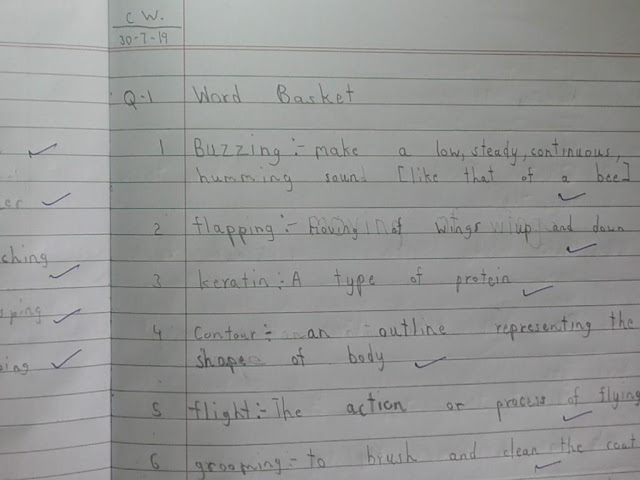 C W.
30-7-19
Q-1 Word Basket
1 Buzzing:- make a low, steady, continuous,
humming sound [like that of a bee]
2 flapping:- Moving of wings up and down
3 keratin:- A type of protein
4 Contour:- an outline representing the
shape of body
5 flight:- The action or process of flying
6 grooming:- to brush and clean the coat
ching